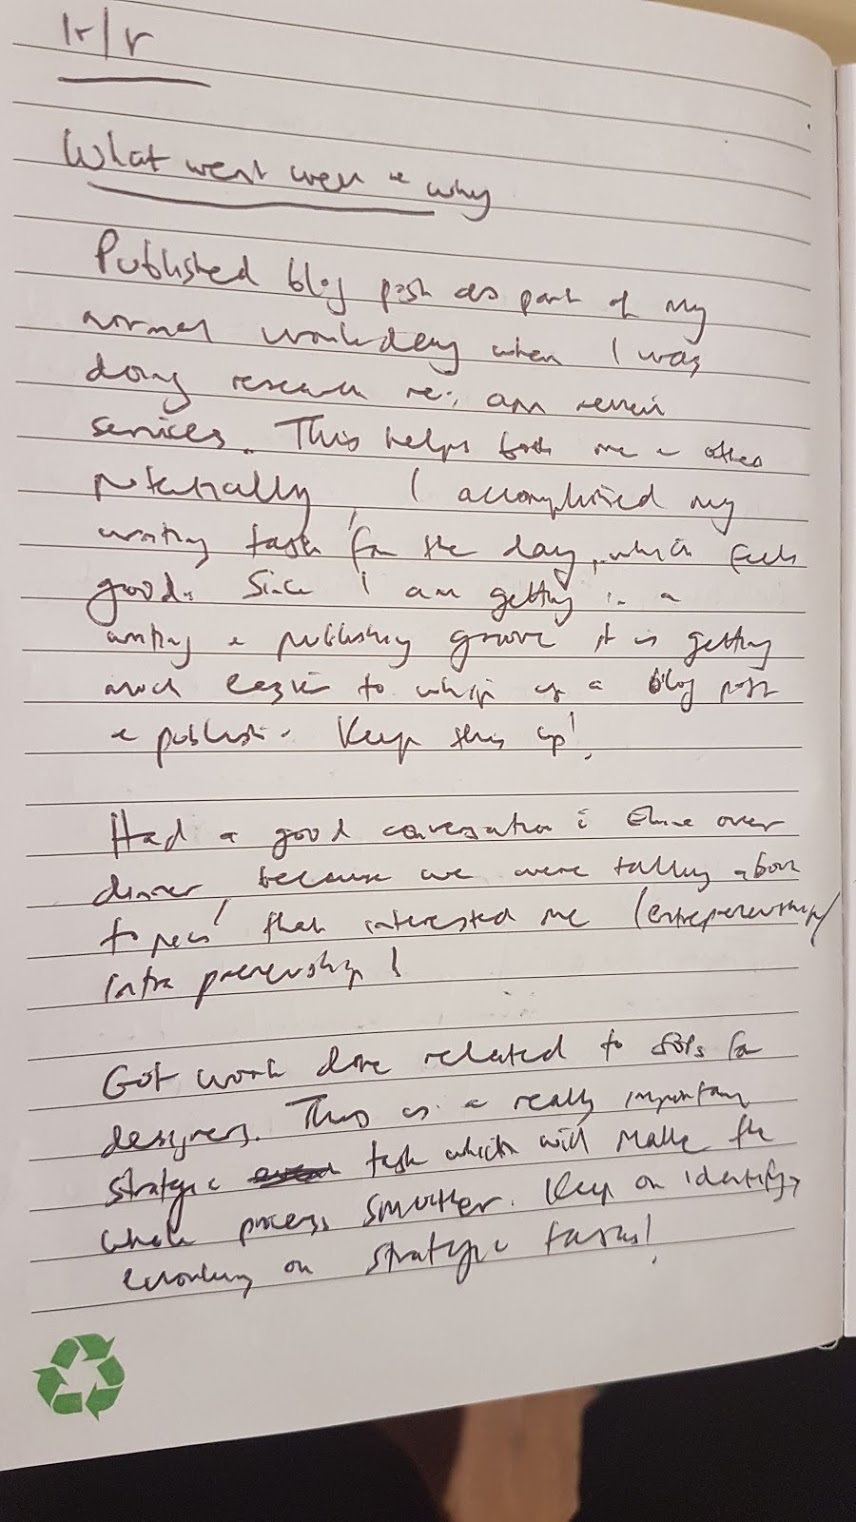 What went well & why
Published blog post as part of my
normal workday when I was
doing research re: app review
services. This helps both me & others
potentially. I accomplished my
writing task for the day, which feels
good. Since I am getting in a
writing & publishing groove it is getting
much easier to whip up a blog post
& publish it. Keep this up!
Had a good conversation c over
dinner, because we were talking about
topics that interested me (entrepreneurship/
intrapreneurship)
Got work done related to SOPs for
designers. This is a really important
strategic task which will make the
whole process smoother. Keep on identifying
& working on strategic tasks!